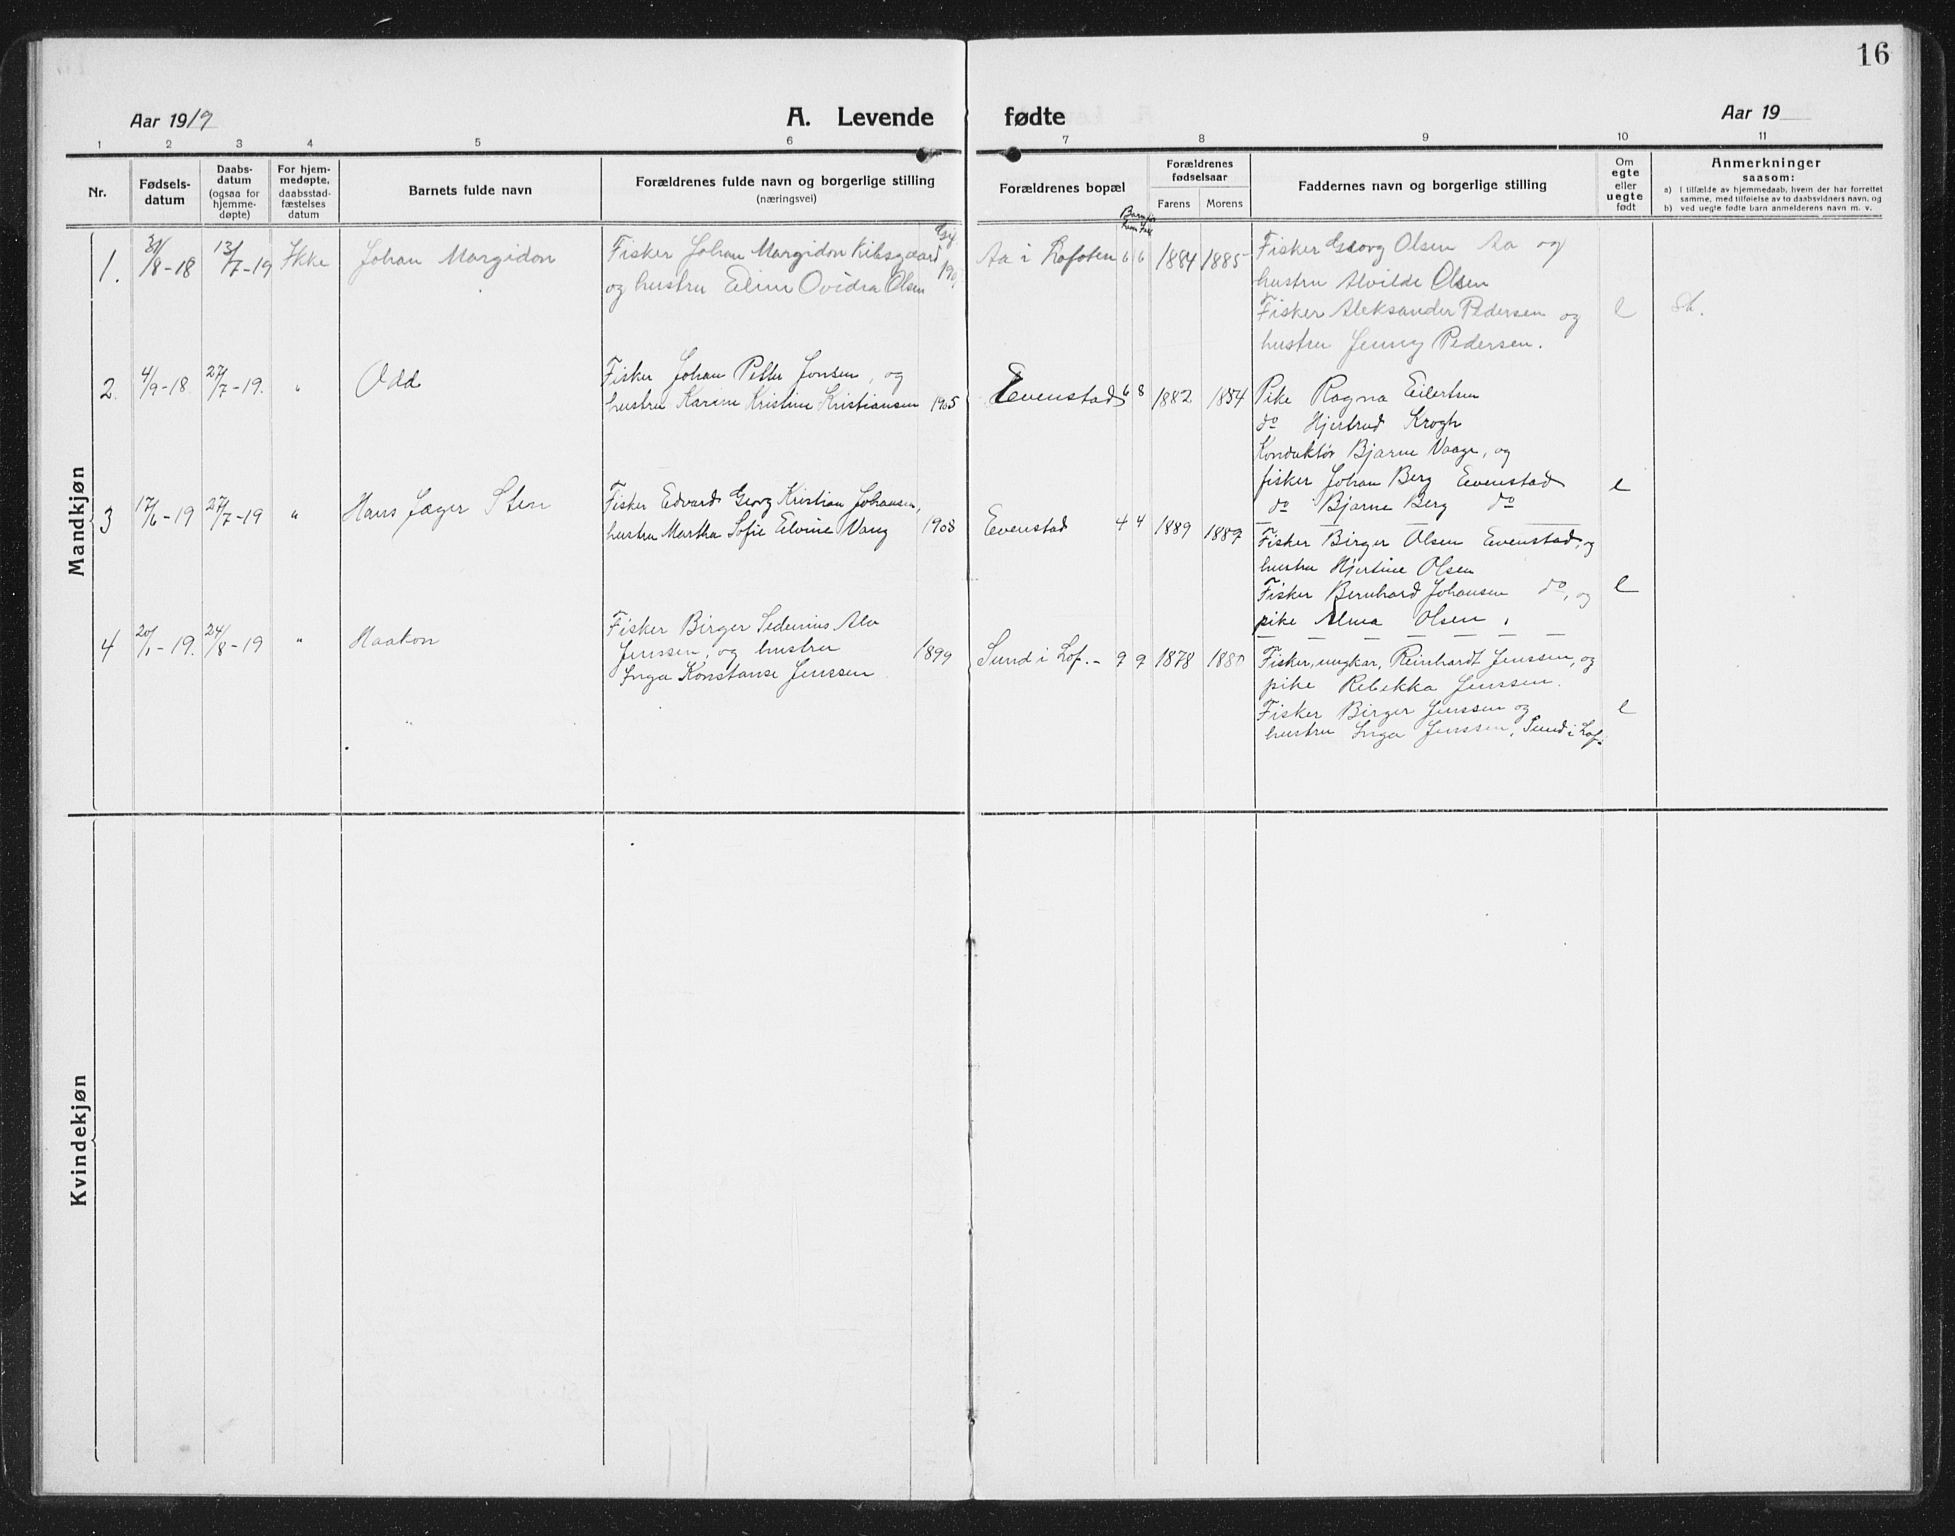 16
Aar 1919
A. Levende fødte
Aar 19
1 2 3 4 5 6 7 8 9 10 11
Nr.
Fødsels-
datum
Daabs-
datum
(ogsaa for
hjemme-
døpte)
For hjem-
medøpte,
daabsstad-
fæstelses
datum
Barnets fulde navn
Forældrenes fulde navn og borgerlige stilling
(næringsvei)
Gif.
Forældrenes bopæl
Forældrenes
fødselsaar
Farens Morens
Faddernes navn og borgerlige stilling
Om
egte
eller
uegte
født
Anmerkninger
saasom:
a) I tilfælde av hjemmedaab, hvem der har forrettet
samme, med tilføielse av to daabsvidners navn, og
b) ved uegte fødte barn anmelderens navn m. v.
Mandkjøn
1. 31/8-18 13/7-19 Ikke Johan Margidon
Fisker Johan Margidon Kibsgaard
og hustru Eline Ovidia Olsen
Aa i Lofoten 6 6 1884 1885
Fisker Georg Olsen Aa og
hustru Alvilde Olsen
Fisker Aleksander Pedersen og
hustru Jenny Pedersen.
e
2. 4/9-18 27/7-19. " Odd
Fisker Johan Petter Jonsen, og
hustru Karine Kristine Kristiansen 1905
Evenstad 6 8 1882 1884
Pike Ragna Eilertsen
do Hjertrud Krogh
Konduktør Bjarne Vaage, og
fisker Johan Berg Evenstad
do Bjarne Berg do
e
3 17/6-19 27/7-19 " Hans Jæger Sten
Fisker Edvard Georg Kristian Johansen,
hustru Martha Sofie Elvine Vang 1908
Evenstad 4 4 1889 1889
Fisker Birger Olsen Evenstad, og
hustru Hjertine Olsen
Fisker Bernhard Johansen do, og
pike Alma Olsen.
e
4 20/1-19. 24/8-19 " Haakon
Fisker Birger Sedenius Alv
Jenssen, og hustru
Inga Konstanse Jenssen 1899
Sund i Lof. - 9 9 1878 1880
Fisker, ungkar, Reinhardt Jenssen, og
pike Rebekka Jenssen.
Fisker Birger Jenssen og
hustru Inga Jenssen, Sund i Lof.
e
Kvindekjøn